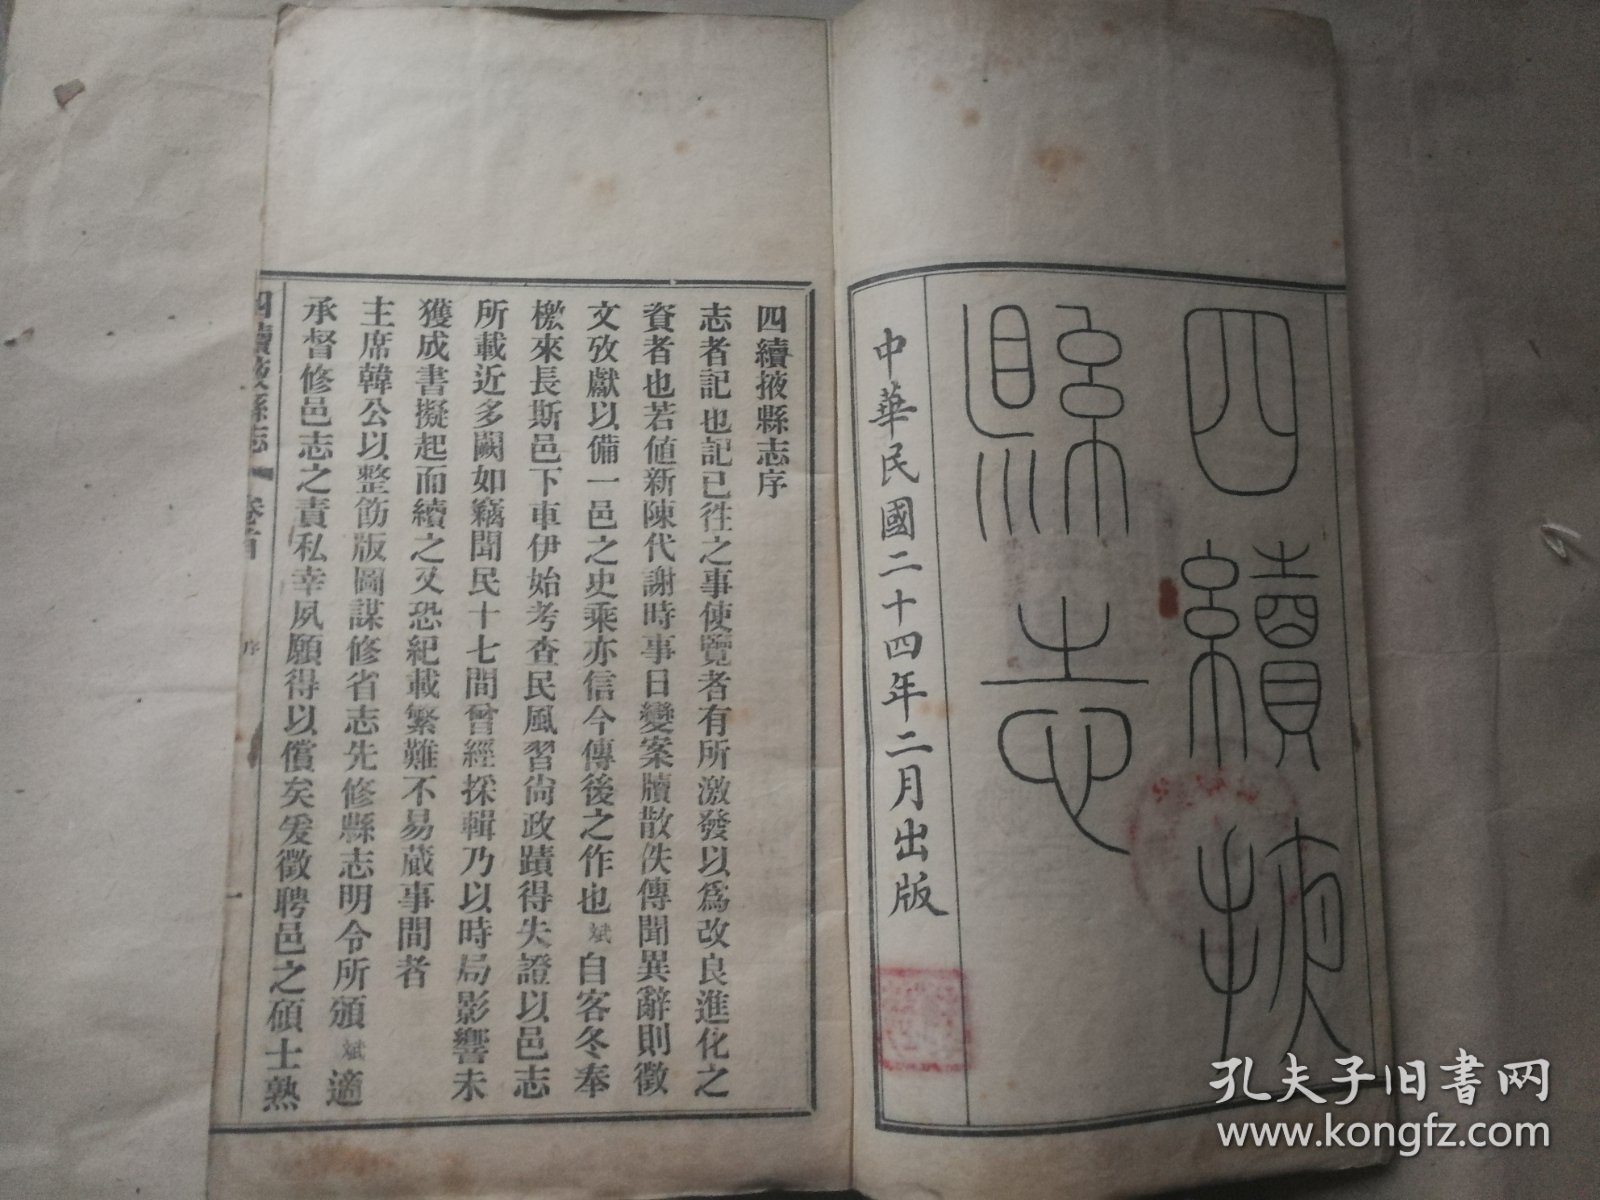 四續掖
縣志
中華民國二十四年二月出版
四續掖縣志序
志者記也記已徃之事使覽者有所激發以爲改良進化之
資者也若値新陳代謝時事日變案牘散佚傳聞異辭則徵
文攷獻以備一邑之史乘亦信今傳後之作也斌自客冬奉
檄來長斯邑下車伊始考查民風習尙政蹟得失證以邑志
所載近多闕如竊聞民十七間曾經採輯乃以時局影響未
獲成書擬起而續之又恐紀載繁難不易蕆事間者
主席韓公以整飭版圖謀修省志先修縣志明令所頒斌適
承督修邑志之責私幸夙願得以償矣爰徵聘邑之碩士熟
四續掖縣志 卷首 序 一
孔夫子旧書网
www.kongfz.com